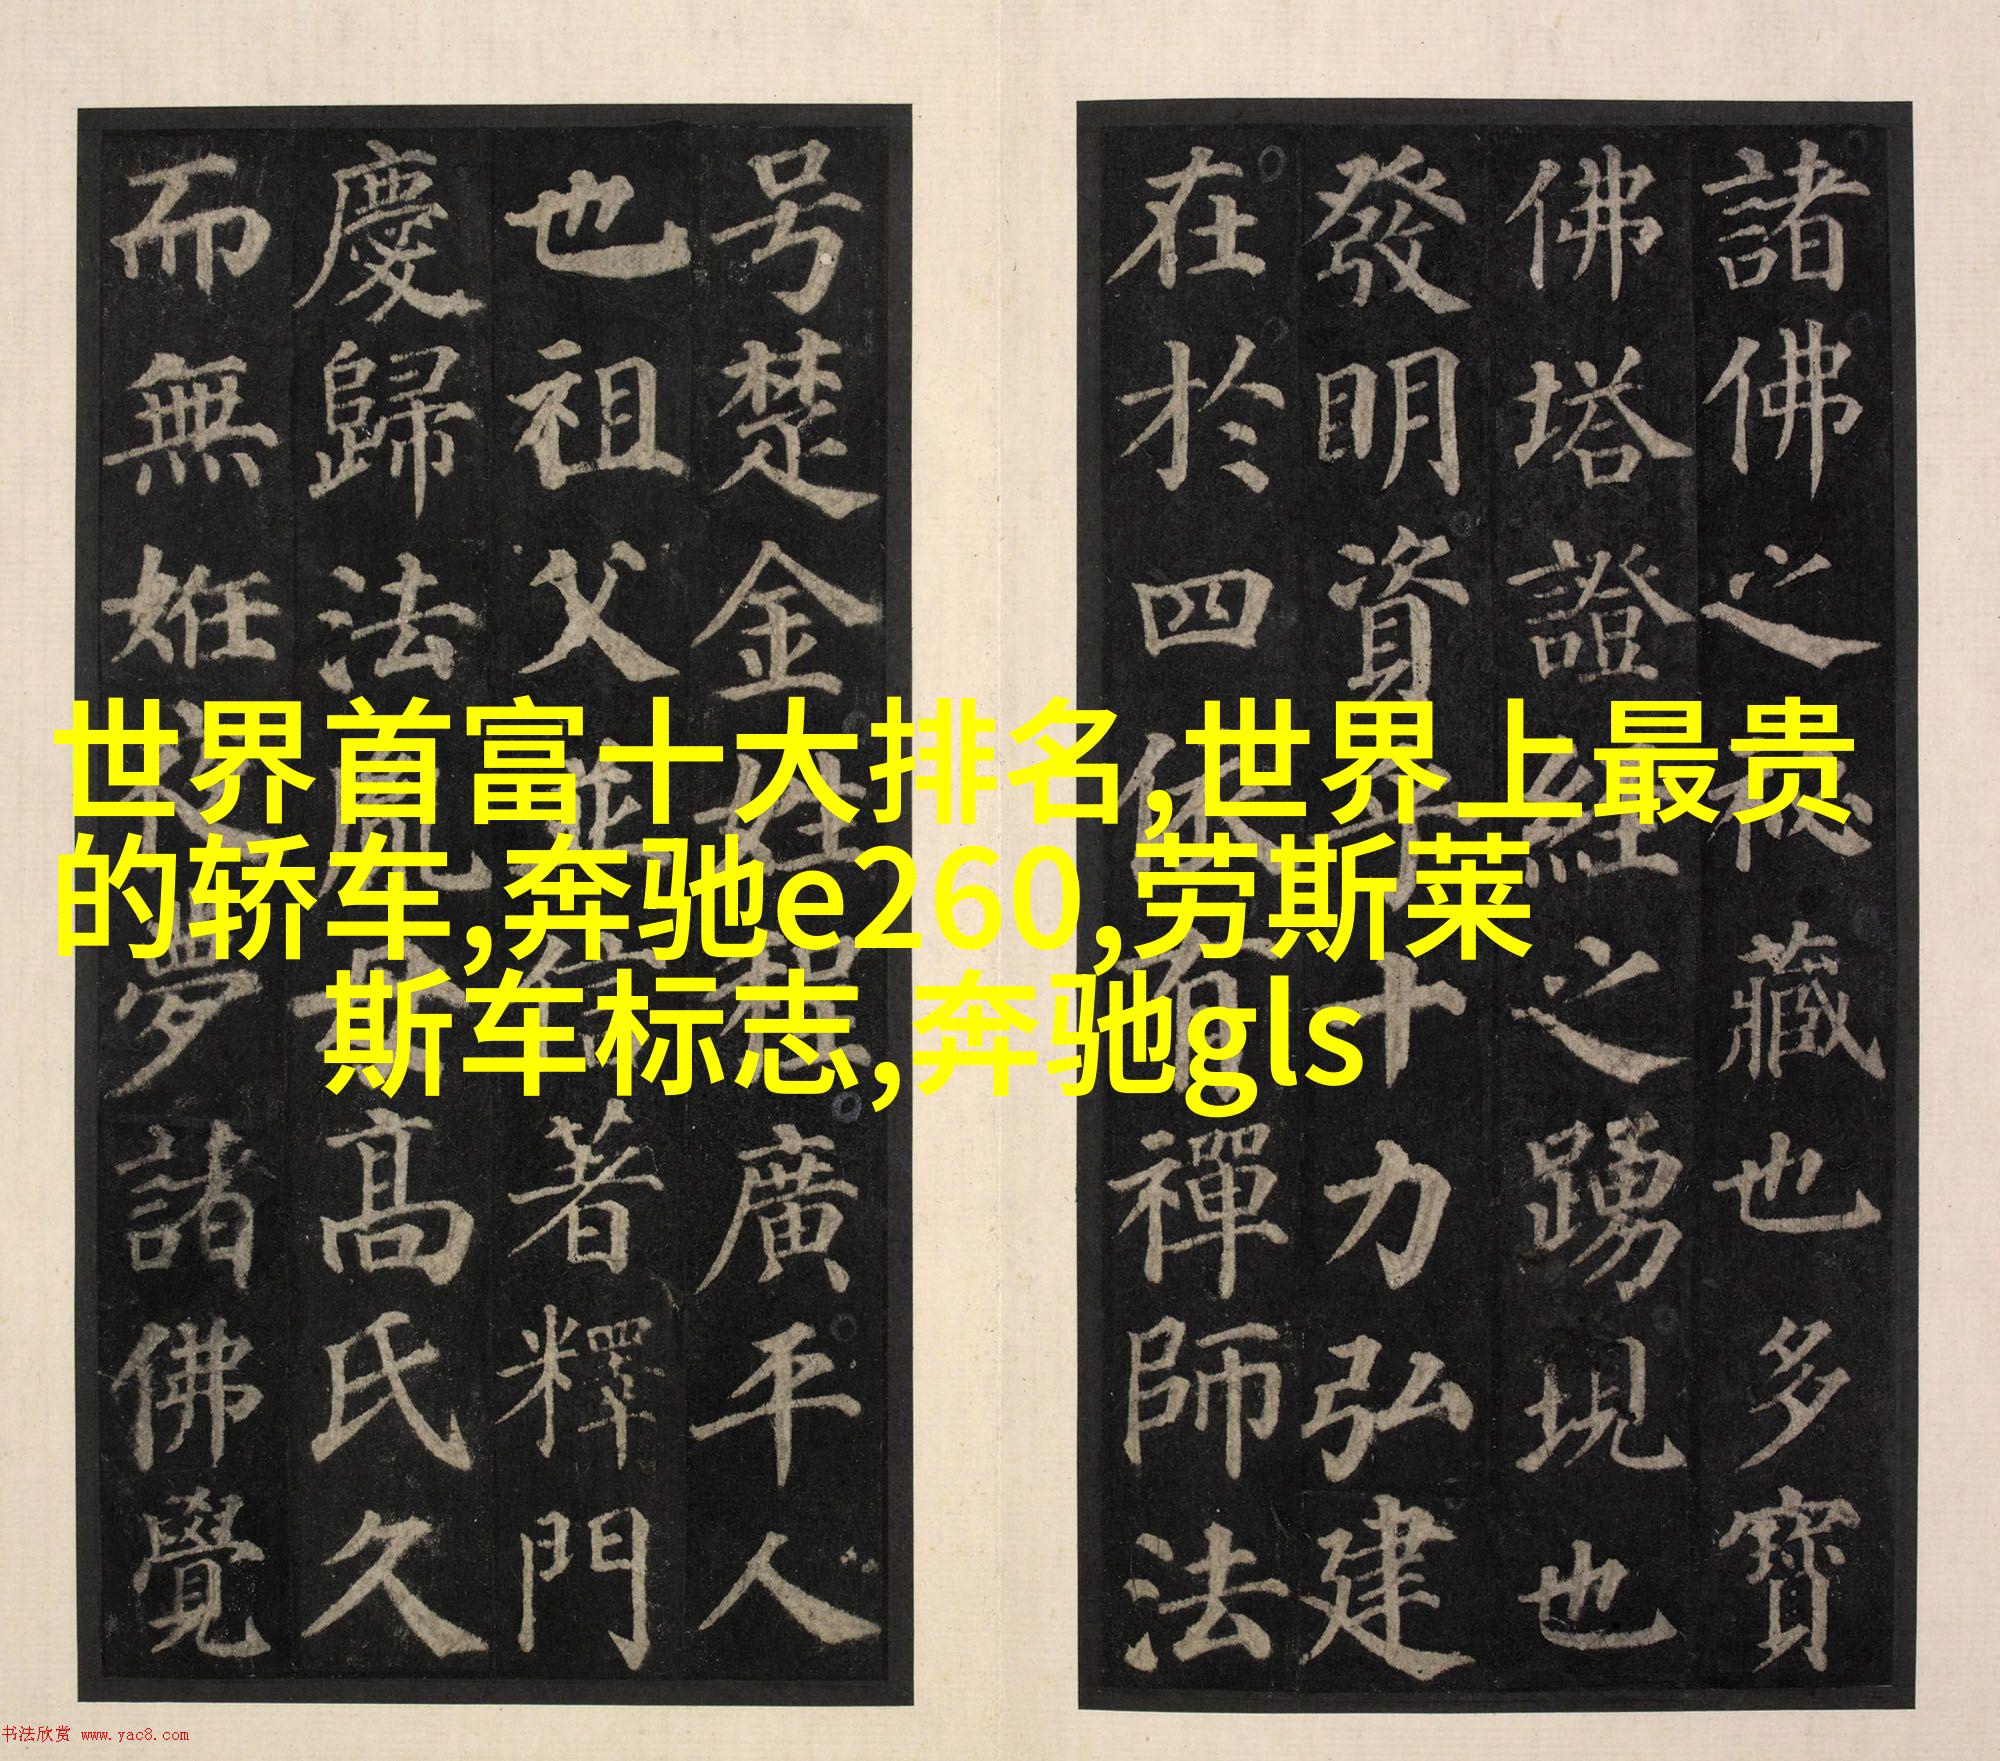 諸佛之秘藏也多寶
佛塔證經之踴現也
發明資十力弘建
在於四依有禪師法
号楚金姓程廣平人
也祖父並信著釋門
慶歸法胤母高氏久
而無姙夜夢諸佛覺
世界首富十大排名,世界上最贵
的轿车,奔驰e260,劳斯莱
斯车标志,奔驰gls
书法欣赏 www.yac8.com